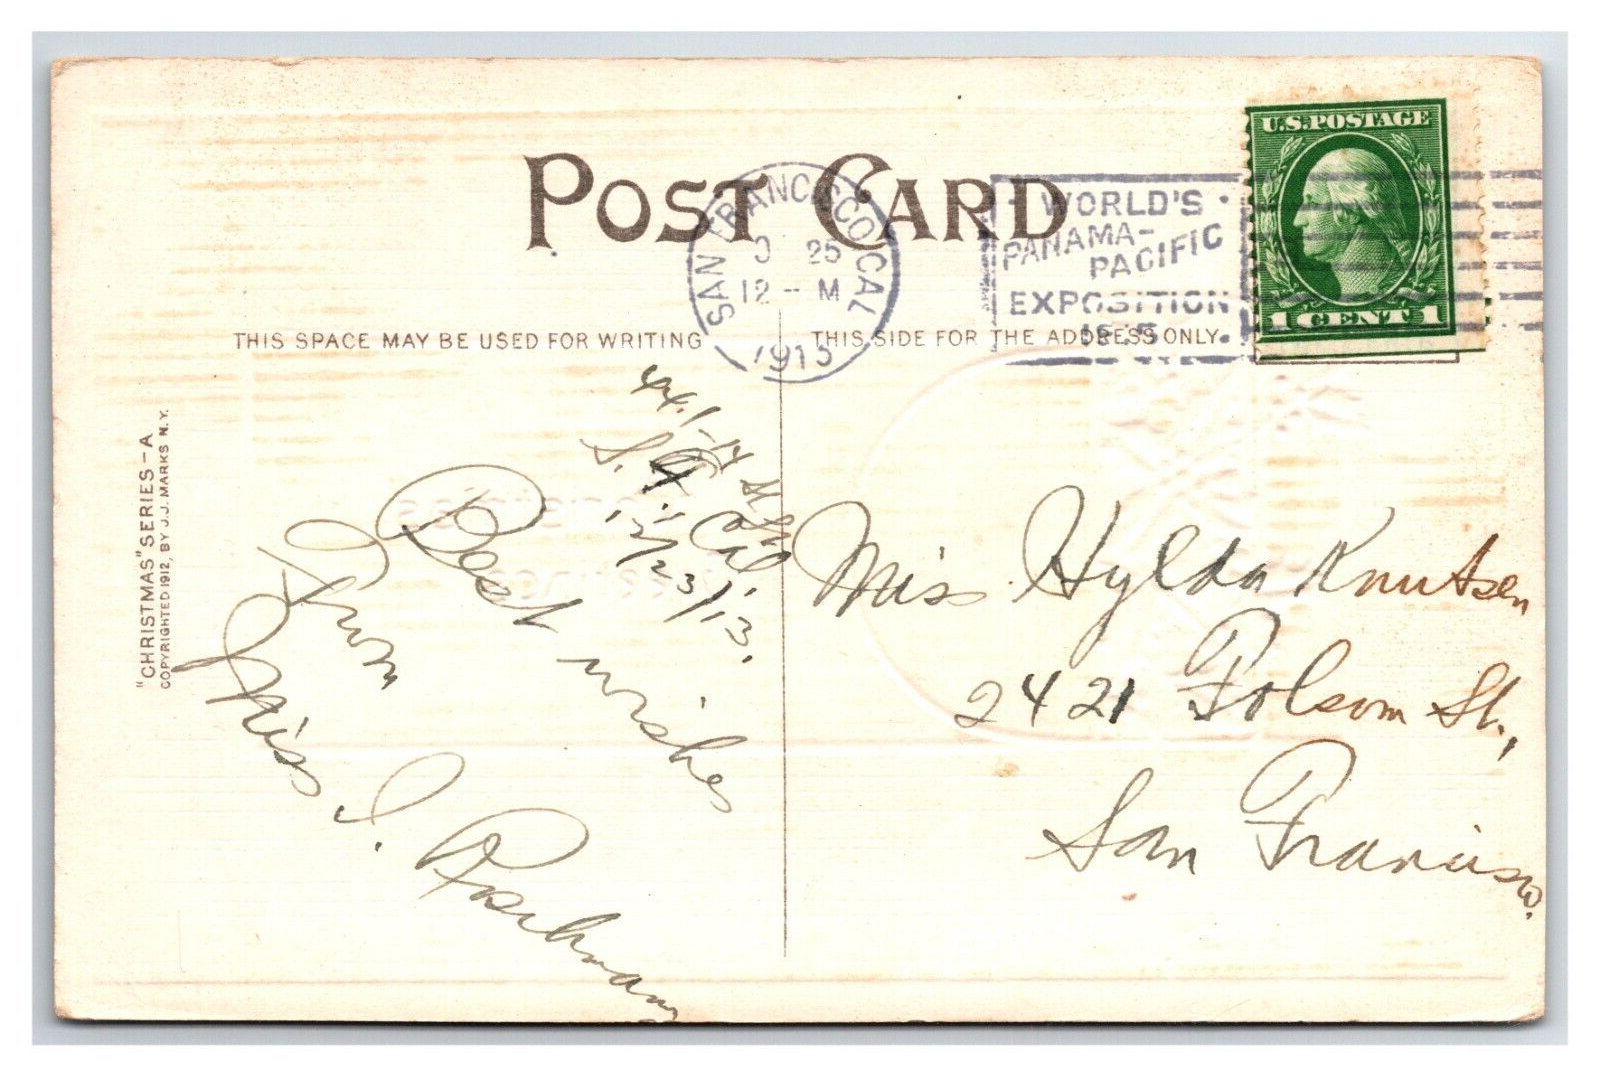 POST CARD
SAN FRANCISCO, CAL
25
12 - M
1913
· WORLD'S ·
PANAMA-
PACIFIC
EXPOSITION
U.S. POSTAGE
1 CENT 1
THIS SPACE MAY BE USED FOR WRITING
THIS SIDE FOR THE ADDRESS ONLY.
"CHRISTMAS" SERIES - A
COPYRIGHTED 1912, BY J.J. MARKS N.Y.
441-14
S. F. Cal.
12/23/13.
Best wishes
From
Miss I.
Miss Hylda Knutsen
2421 Folsom St.,
San Francisco.